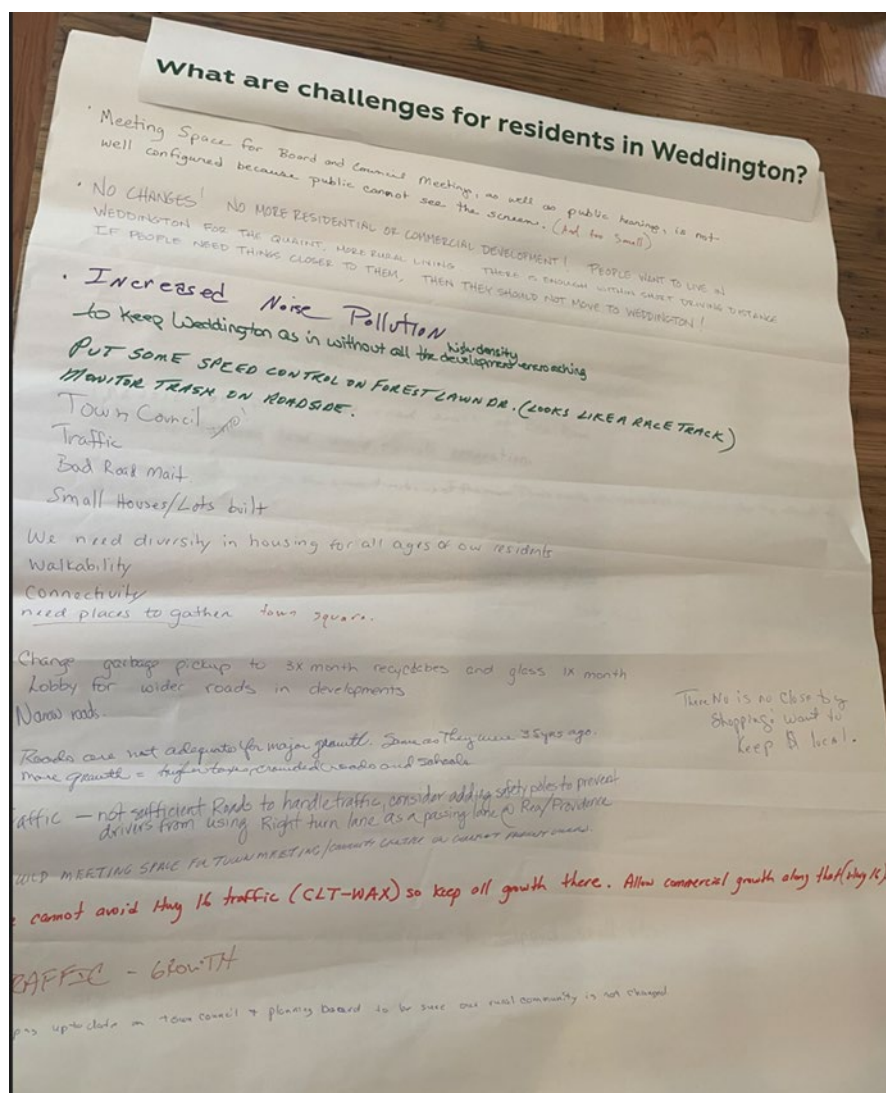 What are challenges for residents in Weddington?
· Meeting Space for Board and Council Meetings, as well as public hearings, is not
well configured because public cannot see the screen. (And too small)
· NO CHANGES! NO MORE RESIDENTIAL OR COMMERCIAL DEVELOPMENT! PEOPLE WANT TO LIVE IN
WEDDINGTON FOR THE QUAINT, MORE RURAL LIVING. THERE IS ENOUGH WITHIN SHORT DRIVING DISTANCE
IF PEOPLE NEED THINGS CLOSER TO THEM, THEN THEY SHOULD NOT MOVE TO WEDDINGTON!
· Increased Noise Pollution
to keep Weddington as in without all the high density development encroaching
PUT SOME SPEED CONTROL ON FOREST LAWN DR. (LOOKS LIKE A RACE TRACK)
MONITOR TRASH ON ROADSIDE.
Town Council
Traffic
Bad Road Mait
Small Houses/Lots built
We need diversity in housing for all ages of our residents
Walkability
Connectivity
need places to gather town square.
Change garbage pickup to 3x month recyclebes and glass 1x month
Lobby for wider roads in developments
Narrow roads.
There No is no close by
Shopping: want to
keep it local.
Roads are not adequate for major growth. Same as they were 35 yrs ago.
more growth = higher taxes, crowded roads and schools
affic — not sufficient Roads to handle traffic, consider adding safety poles to prevent
drivers from using Right turn lane as a passing lane @ Rea/Providence
UILD MEETING SPACE FOR TOWN MEETING/
e cannot avoid Hwy 16 traffic (CLT-WAX) so keep all growth there. Allow commercial growth along that (Hwy 16)
RAFFIC - GROWTH
up to date on town council + planning board to be sure our rural community is not changed